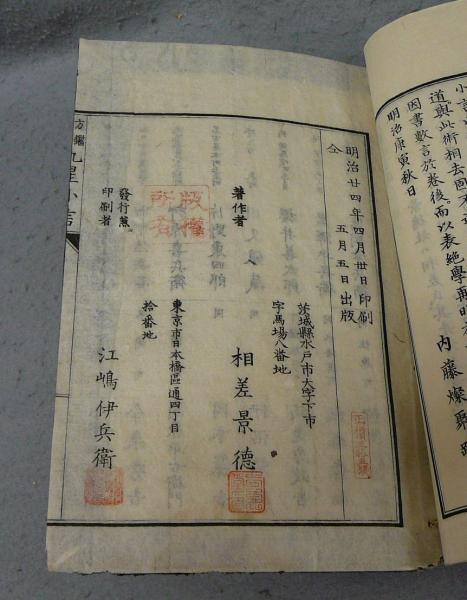 道與此術相去固不
因書數言於卷後而以表絶學再明
明治庚寅秋日
内藤燦聚
明治廿四年四月卅日印刷
仝
五月五日出版
茨城縣水戸市大字下市
字馬場八番地
著作者
相差景德
版權所有
東京市日本橋區通四丁目
拾番地
發行兼
印刷者
江嶋伊兵衛
方鑑九星小言